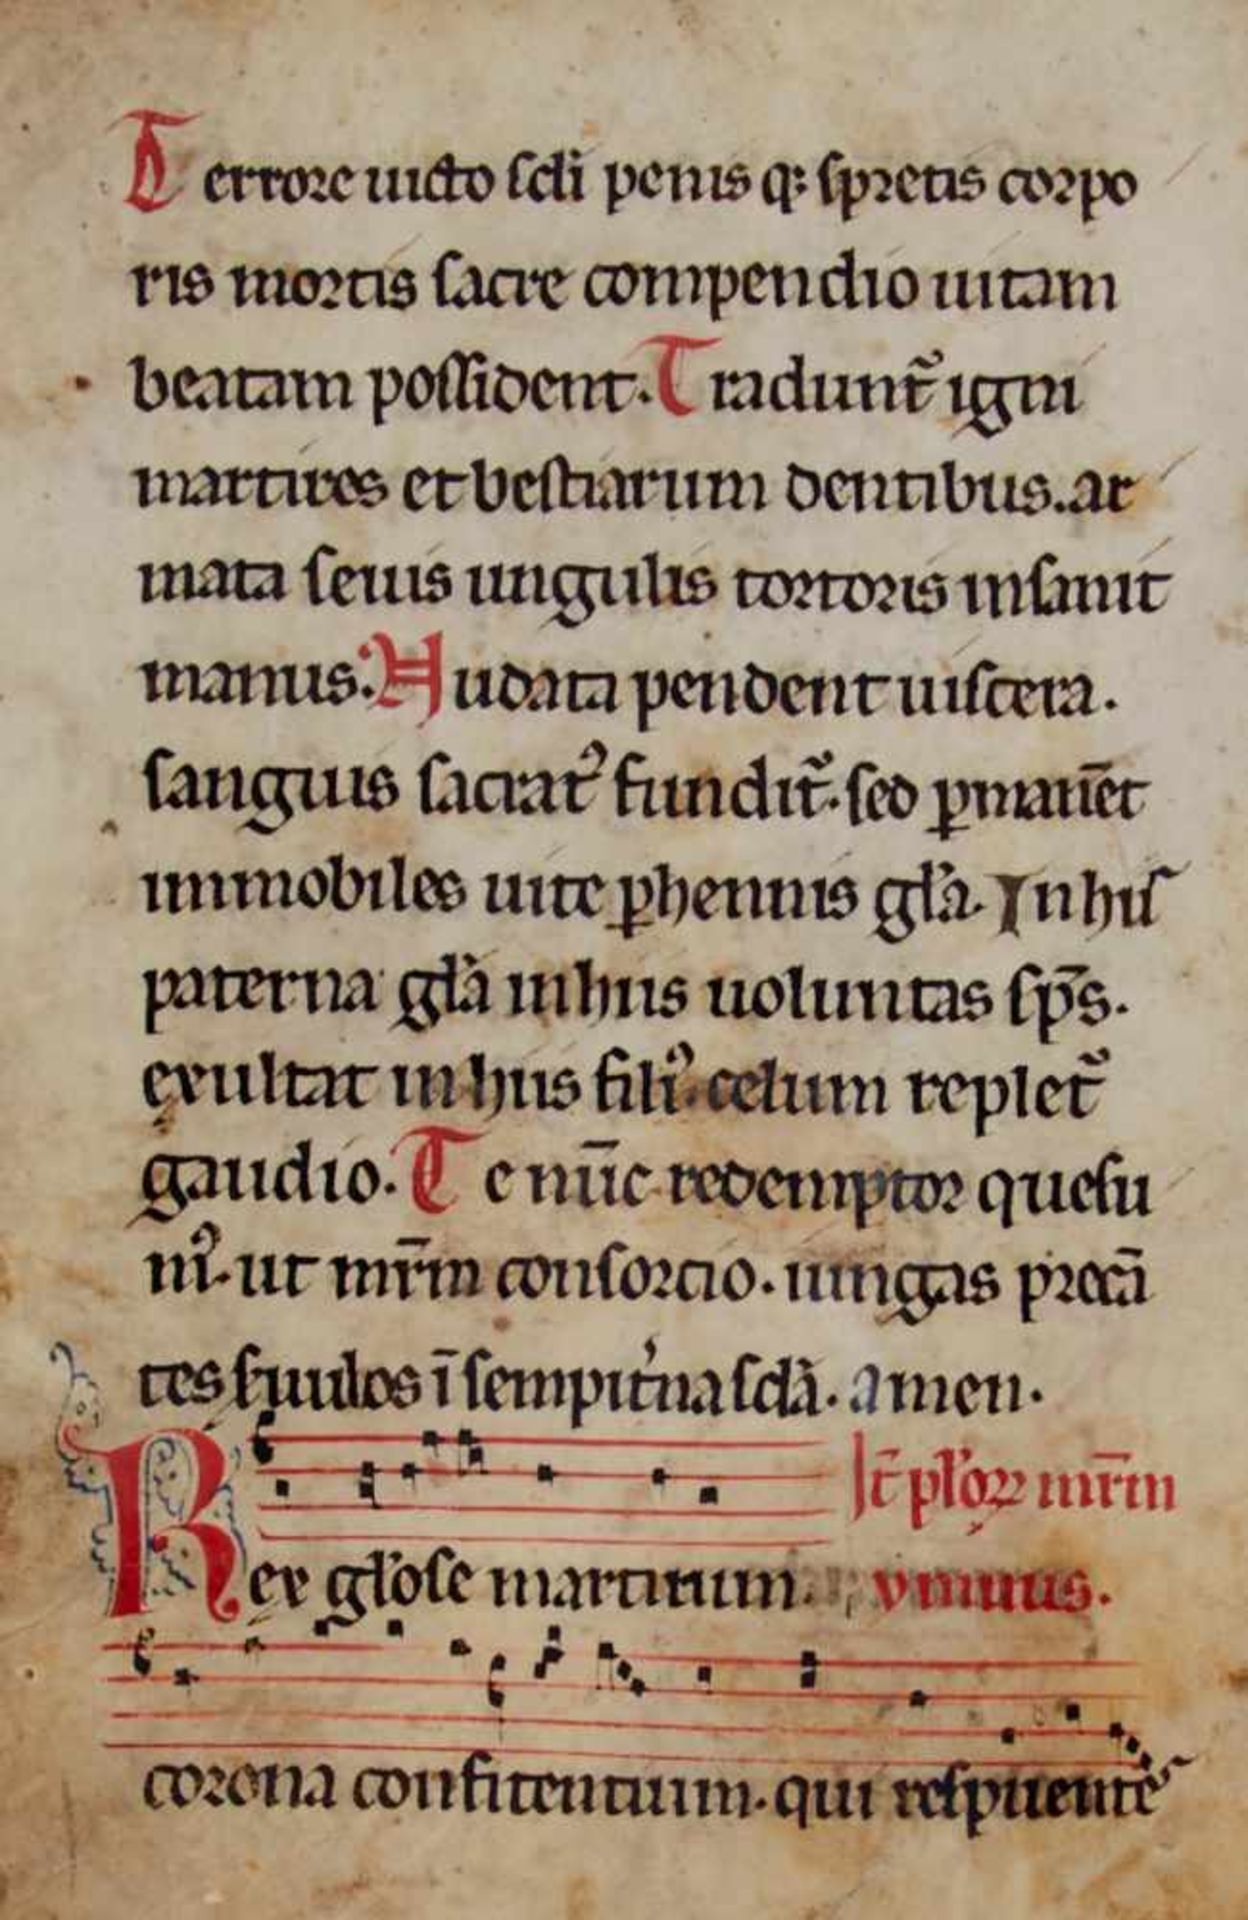 Terrore uicto scłi penis q: spretis corpo
ris mortis sacre compendio uitam
beatam possident. Tradunt᷑ igni
martires et bestiarum dentibus. ar
mata seuis ungulis tortoris insanit
manus. Nudata pendent uiscera.
sanguis sacratꝰ fundit᷑. sed ꝑmanēt
immobiles uite ꝑhennis gła. In his
paterna gła in hiis uoluntas sp̄s.
exultat in hiis filiꝰ. celum replet᷑
gaudio. Te nūc redemptor quesu
mꝰ. ut mr̄m consorcio. iungas p̃cā
tes seruulos ī sempit̾na scła. amen.
It̄ płoꝝ mr̄m
Rex głose martirum. ymnus.
corona confitentium. qui respuente᷒